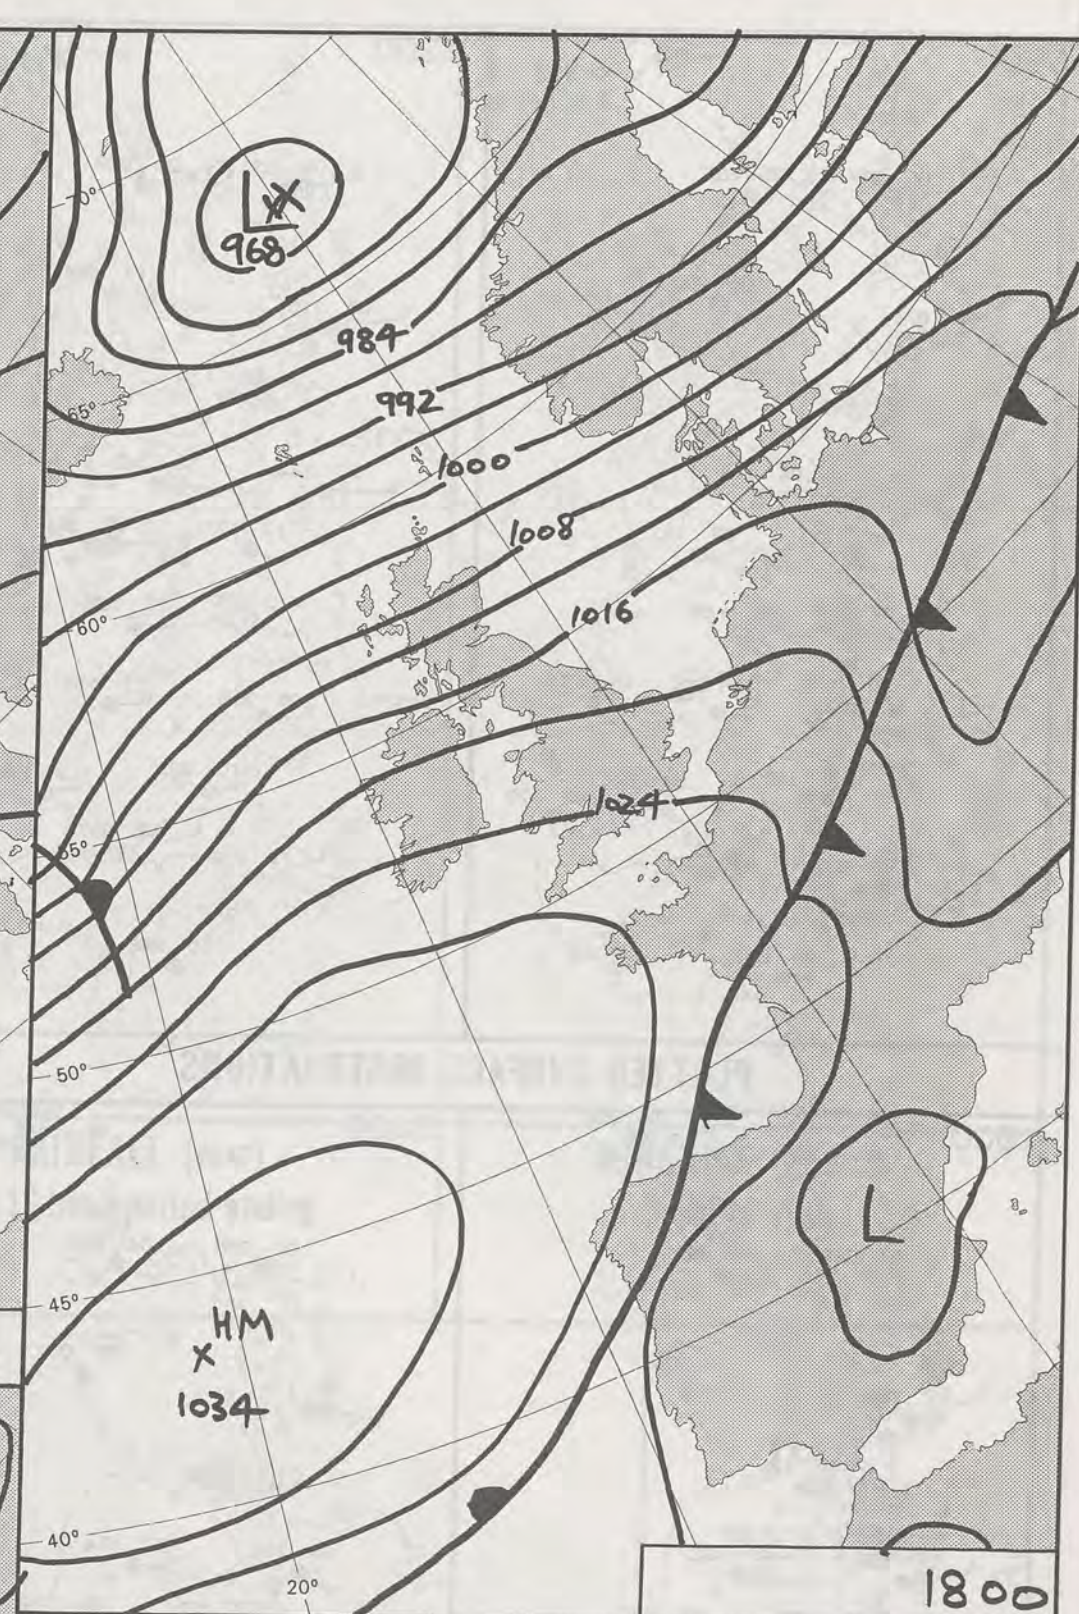 70°
L
968
984
65°
992
1000
1008
60°
1016
1024
55°
50°
L
45°
HM
x
1034
40°
20°
1800